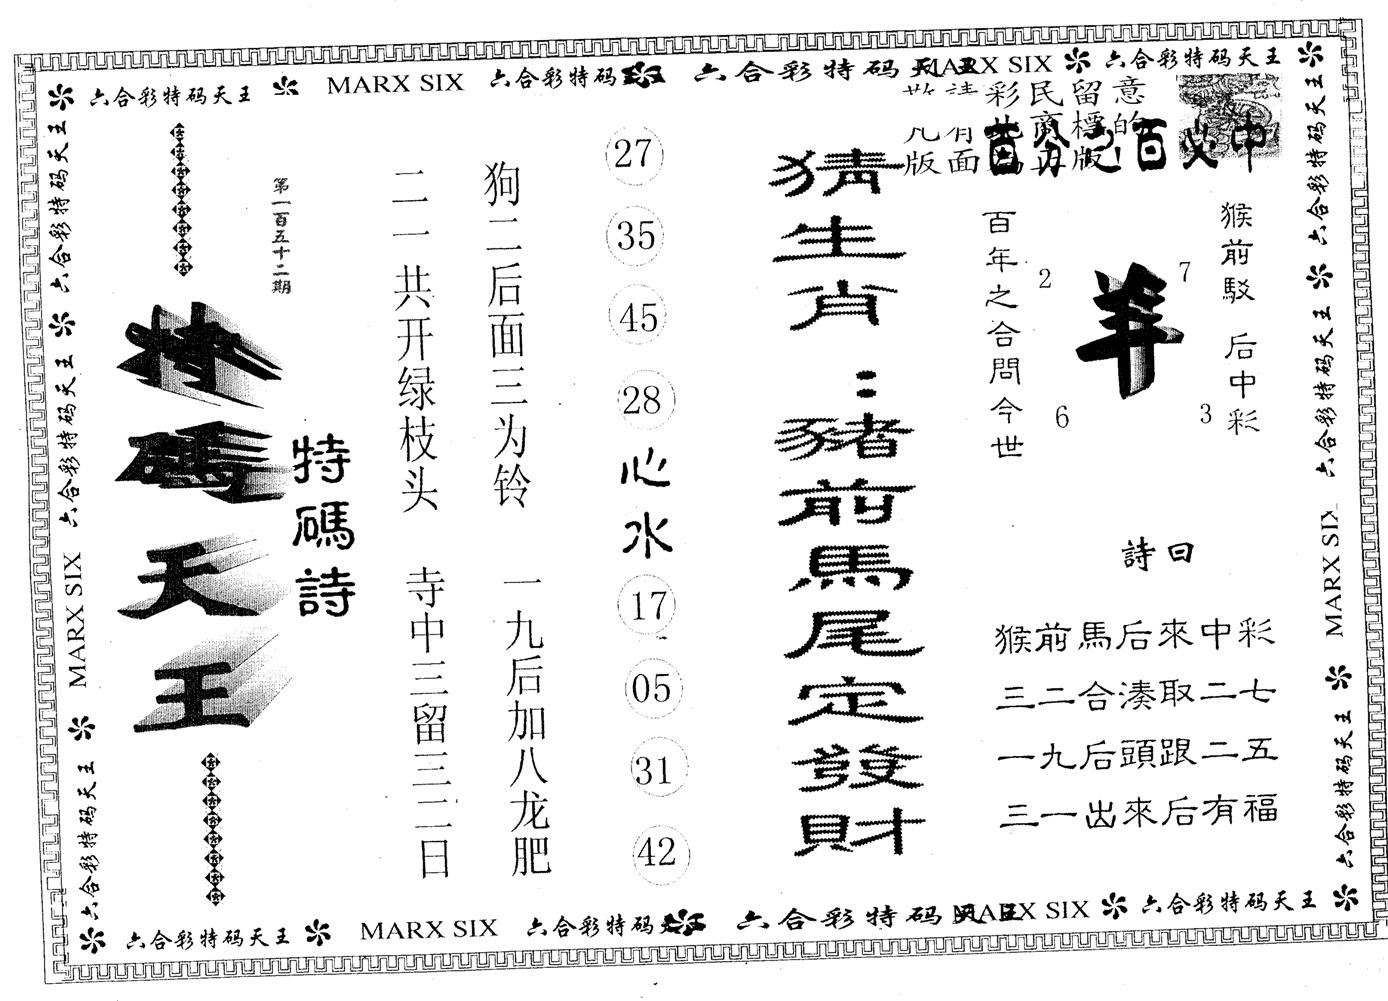 六合彩特码天王 MARX SIX 六合彩特码天王 六合彩特码天王 MARX SIX 六合彩特码天王
彩民留意
有 商標的
版面 版!
百分之百必中
猴前駁 后中彩
羊
7
2
3
6
百年之合問今世
詩曰
猴前馬后來中彩
三二合湊取二七
一九后頭跟二五
三一出來后有福
猜生肖：豬前馬尾定發財
27
35
45
28
心水
17
05
31
42
狗二后面三为铃 一九后加八龙肥
二一共开绿枝头 寺中三留三二日
特碼詩
第一百五十二期
特碼天王
六合彩特码天王 六合彩特码天王 MARX SIX 六合彩特码天王
六合彩特码天王 六合彩特码天王 MARX SIX 六合彩特码天王
六合彩特码天王 MARX SIX 六合彩特码天王 六合彩特码天王 MARX SIX 六合彩特码天王